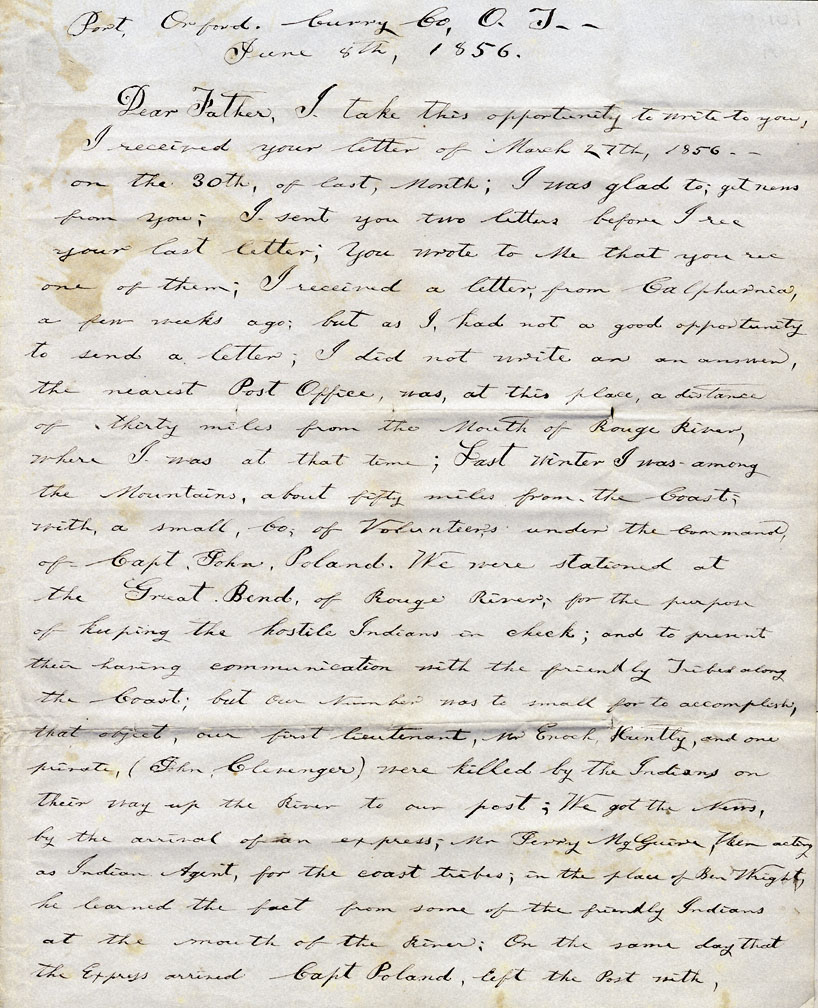 Port, Orford. Curry Co, O. T. - -
June 8th, 1856.
Dear Father, I take this opportunity to write to you,
I received your letter of March 27th, 1856. - -
on the 30th, of last, Month; I was glad to; get news
from you; I sent you two letters before I rec
your last letter; You wrote to Me that you rec
one of them; I received a letter, from Calphurnia,
a few weeks ago; but as I, had not a good opportunity
to send a letter; I did not write an an answer,
the nearest Post Office, was, at this place, a distance
of thirty miles from the Mouth of Rouge River,
where I was at that time; Last winter I was among
the Mountains, about fifty miles from the Coast;
with, a small, Co; of Volunteers under the Command,
of Capt. John, Poland. We were stationed at
the Great Bend, of Rouge River; for the purpose
of keeping the hostile Indians in check; and to prevent
their having communication with the friendly Tribes along
the Coast; but our Number was to small for to accomplish,
that object, our first lieutenant, Mr Enoch, Huntly, and one
private, (John, Clevenger) were killed by the Indians on
their way up the River to our post; We got the News,
by the arrival of an express; Mr Perry McGuire, then acting
as Indian Agent, for the coast tribes; in the place of Ben Wright,
he learned the fact from some of the friendly Indians
at the mouth of the River; On the same day that
the Express arrived Capt Poland, left the Post with,